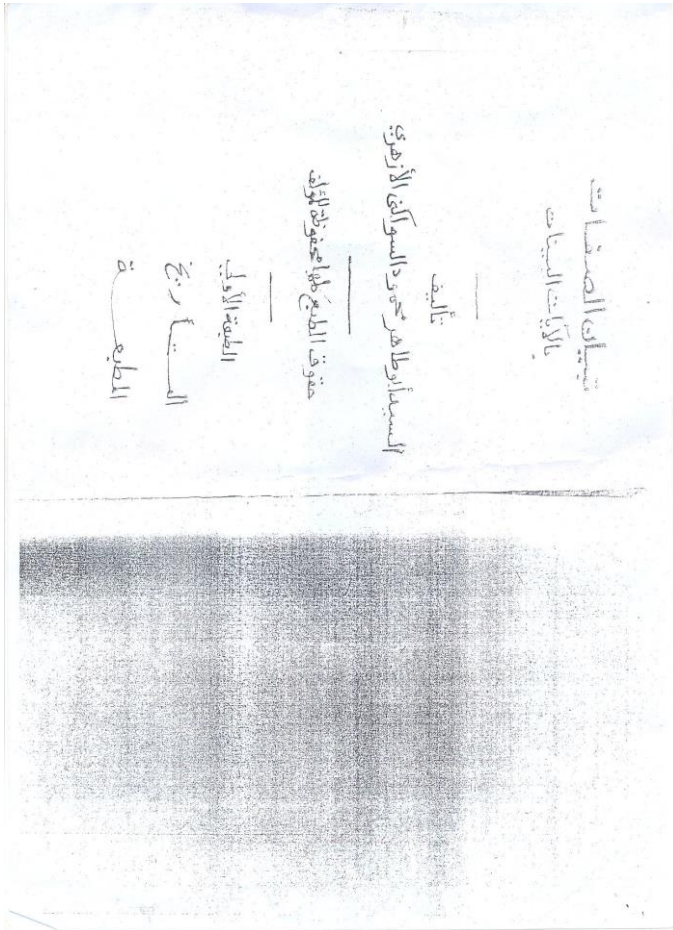 تبيان الصفات
بالآيات البينات
تأليف
السيد أبو طاهر محمود السواكنى الأزهري
حقوق الطبع كلها محفوظة للمؤلف
الطبعة الأولى
التأريخ
المطبعة